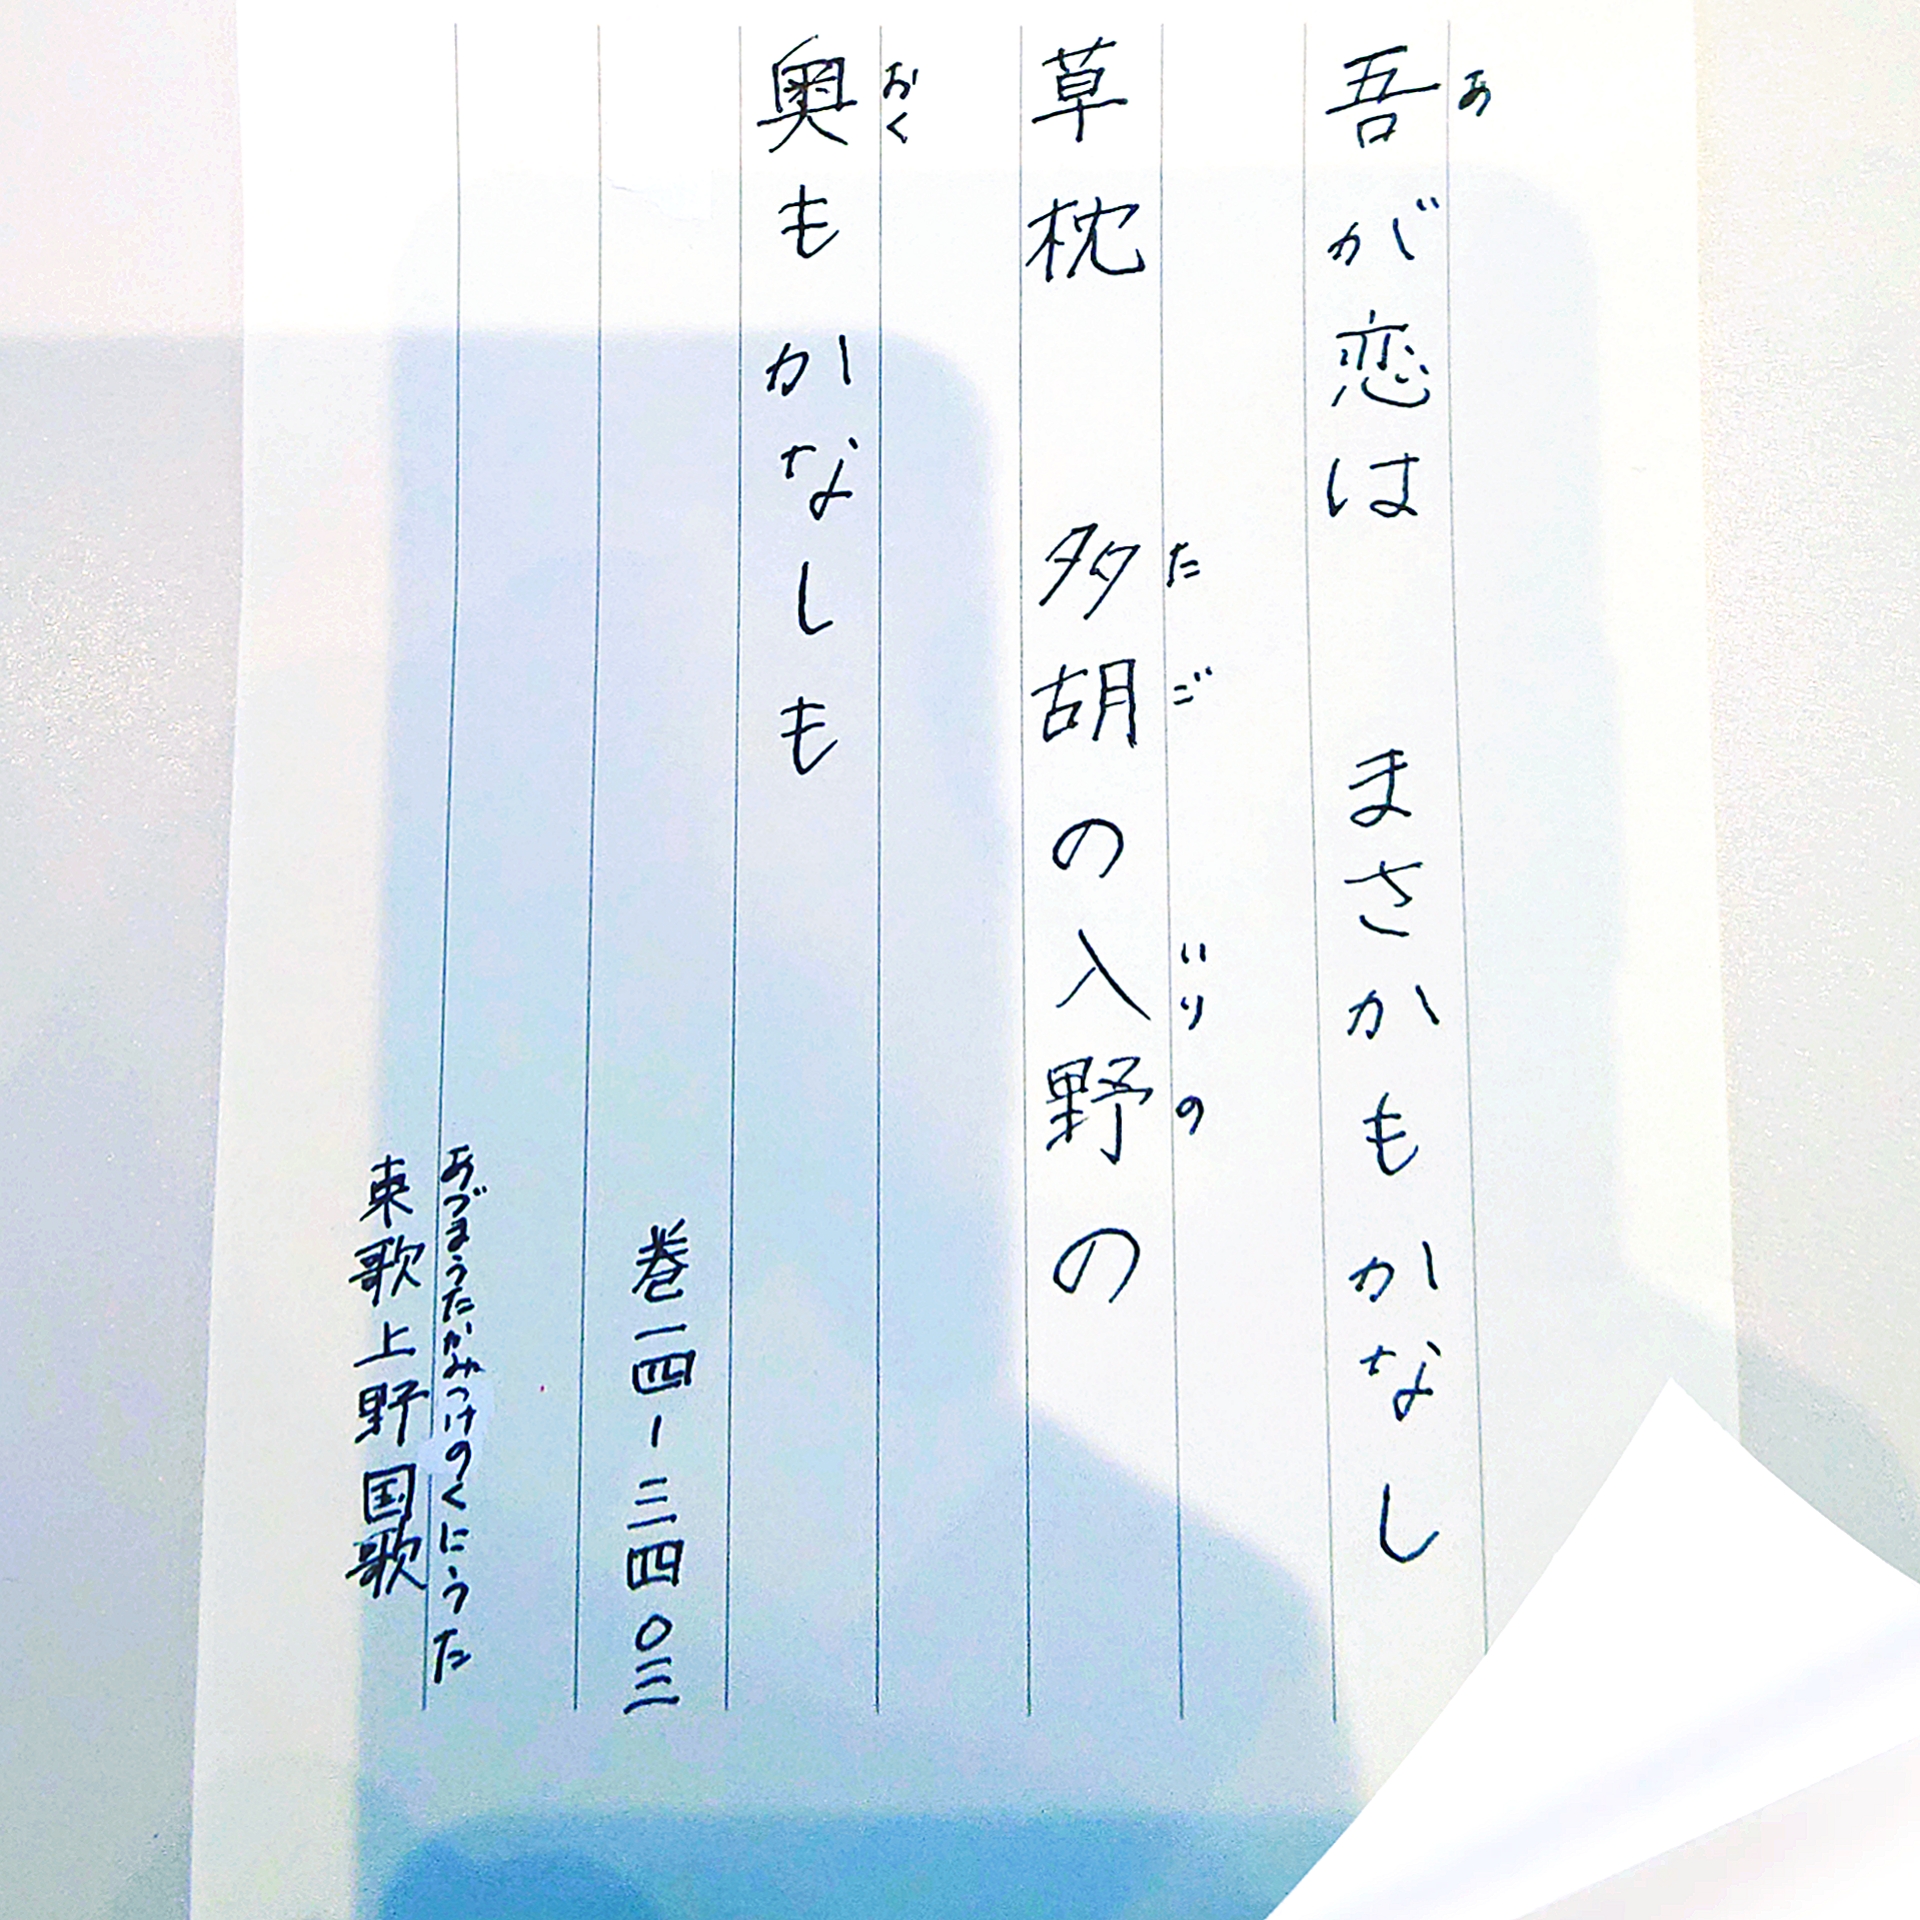 吾が恋は　まさかもかなし
あ
草枕　多胡の入野の
たご　いりの
奥もかなしも
おく
巻一四-三四〇三
東歌上野国歌
あづまうたかみつけのくにうた